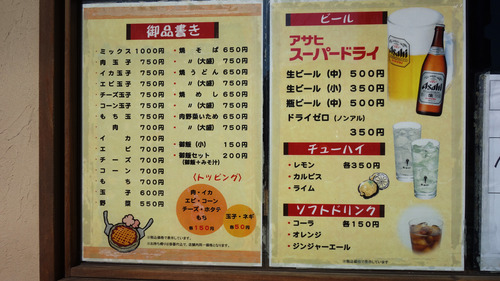 御品書き
・ミックス 1000円
・肉玉子 750円
・イカ玉子 750円
・エビ玉子 750円
・チーズ玉子 750円
・コーン玉子 750円
・もち玉 750円
・肉 700円
・イカ 700円
・エビ 700円
・チーズ 700円
・コーン 700円
・もち 700円
・玉子 600円
・野菜 550円
・焼そば 650円
・〃(大盛) 750円
・焼うどん 650円
・〃(大盛) 750円
・焼めし 650円
・〃(大盛) 750円
・肉野菜いため 650円
・〃(大盛) 750円
・御飯(小) 150円
・御飯セット 200円
(御飯+みそ汁)
〈トッピング〉
肉・イカ
エビ・コーン
チーズ・ホタテ
もち
各150円
玉子・ネギ
各50円
ビール
アサヒ
スーパードライ
生ビール(中) 500円
生ビール(小) 350円
瓶ビール(中) 500円
ドライゼロ(ノンアル)
350円
Asahi
チューハイ
・レモン 各350円
・カルピス
・ライム
ソフトドリンク
・コーラ 各150円
・オレンジ
・ジンジャーエール